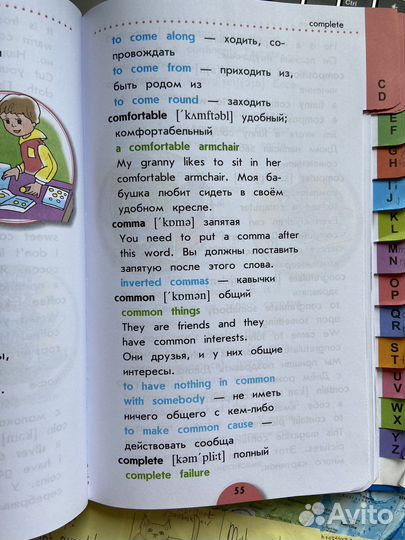 complete
to come along — ходить, со-
провождать
to come from — приходить из,
быть родом из
to come round — заходить
comfortable [ˈkʌmftəbl] удобный;
комфортабельный
a comfortable armchair
My granny likes to sit in her
comfortable armchair. Моя ба-
бушка любит сидеть в своём
удобном кресле.
comma [ˈkɒmə] запятая
You need to put a comma after
this word. Вы должны поставить
запятую после этого слова.
inverted commas — кавычки
common [ˈkɒmən] общий
common things
They are friends and they
have common interests.
Они друзья, и у них общие
интересы.
to have nothing in common
with somebody — не иметь
ничего общего с кем-либо
to make common cause —
действовать сообща
complete [kəmˈpliːt] полный
complete failure
55
C
D
E
F
G
H
I
J
K
L
M
N
O
P
Q
R
S
T
U
V
W
X
Y
Z
Ctrl
Avito